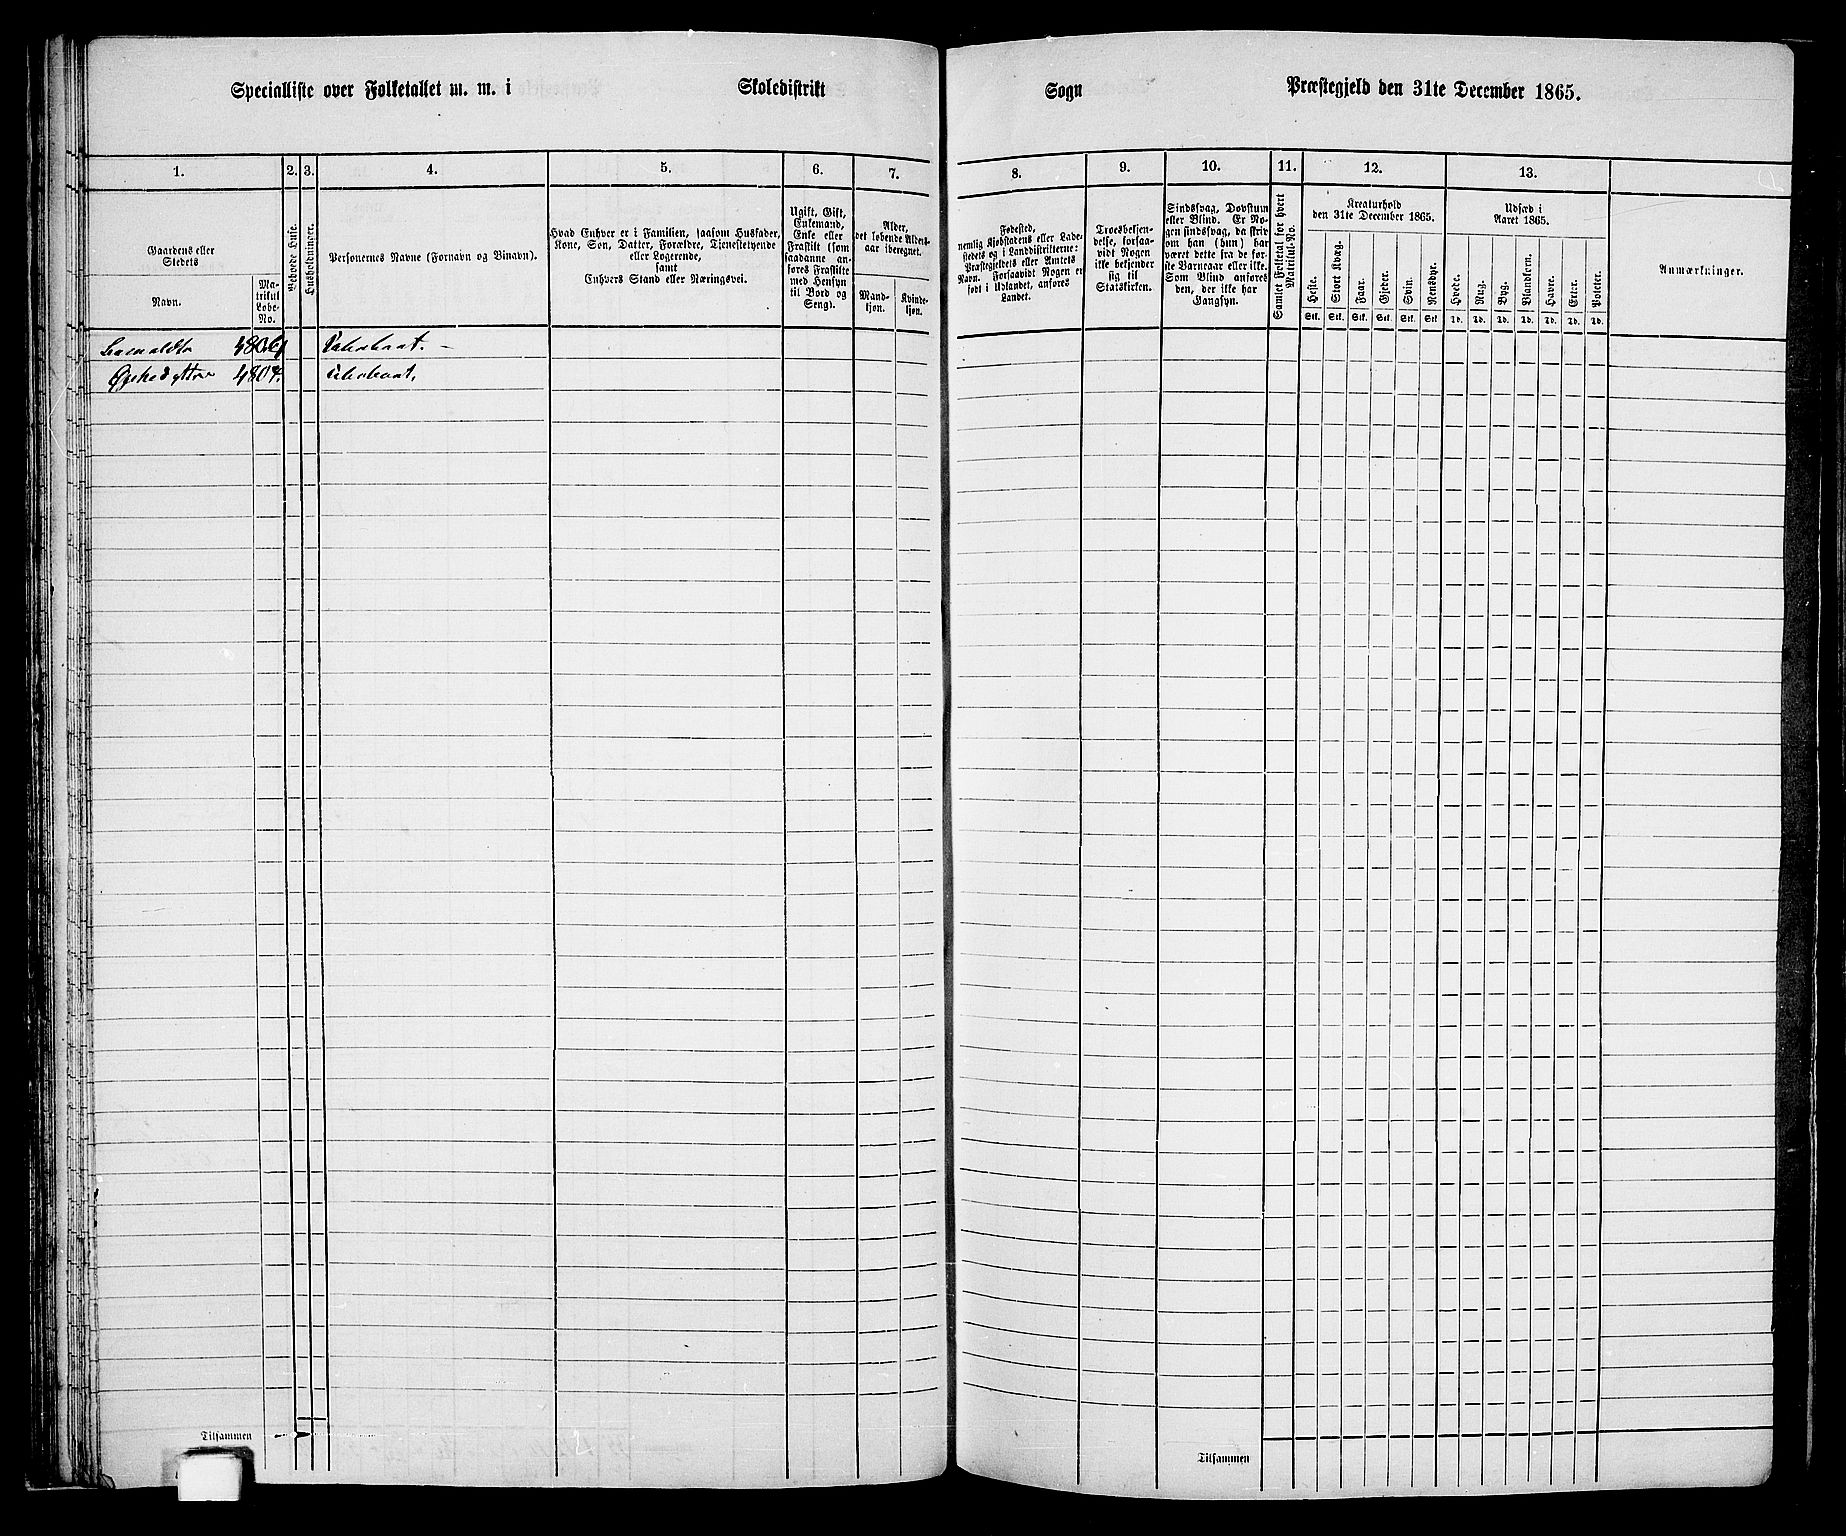 Specialliste over Folketallet m. m. i Skoledistrikt Sogn Præstegjeld den 31te December 1865.
1. 2. 3. 4. 5. 6. 7. 8. 9. 10. 11. 12. 13.
Gaardens eller
Stedets
Navn.
Ma-
trikul
Løbe-
No.
Beboede Huse.
Husholdninger.
Personernes Navne (Fornavn og Binavn).
Hvad Enhver er i Familien, saasom Husfader,
Kone, Søn, Datter, Forældre, Tjenestetyende
eller Logerende,
samt
Enhvers Stand eller Næringsvei.
Ugift, Gift,
Enkemand,
Enke eller
Fraskilt (som
saadanne an-
føres Fraskilte
med Hensyn
til Bord og
Seng).
Alder,
det løbende Alders-
aar iberegnet.
Mand-
kjøn.
Kvinde-
kjøn.
Fødested,
nemlig Kjøbstadens eller Lade-
stedets og i Landdistrikterne:
Præstegjeldets eller Amtets
Navn. Forsaavidt Nogen er
født i Udlandet, anføres
Landet.
Troesbekjen-
delse, forsaa-
vidt Nogen
ikke bekjender
sig til
Statskirken.
Sindssvag, Døvstum
eller Blind. Er No-
gen sindssvag, da skriv
om han (hun) har
været dette fra de før-
ste Barneaar eller ikke.
Som Blind anføres
den, der ikke har
Gangsyn.
Samlet Folketal for hvert
Matrikul-No.
Kreaturhold
den 31te December 1865.
Heste.
Stort Kvæg.
Faar.
Gjeder.
Svin.
Rensdyr.
Stk. Stk. Stk. Stk. Stk. Stk
Udsæd i
Aaret 1865.
Hvede.
Rug.
Byg.
Blandkorn.
Havre.
Erter.
Poteter.
Td. Td. Td. Td. Td. Td. Td.
Anmærkninger.
480
480
Ubeboet,
Tilsammen
Tilsammen